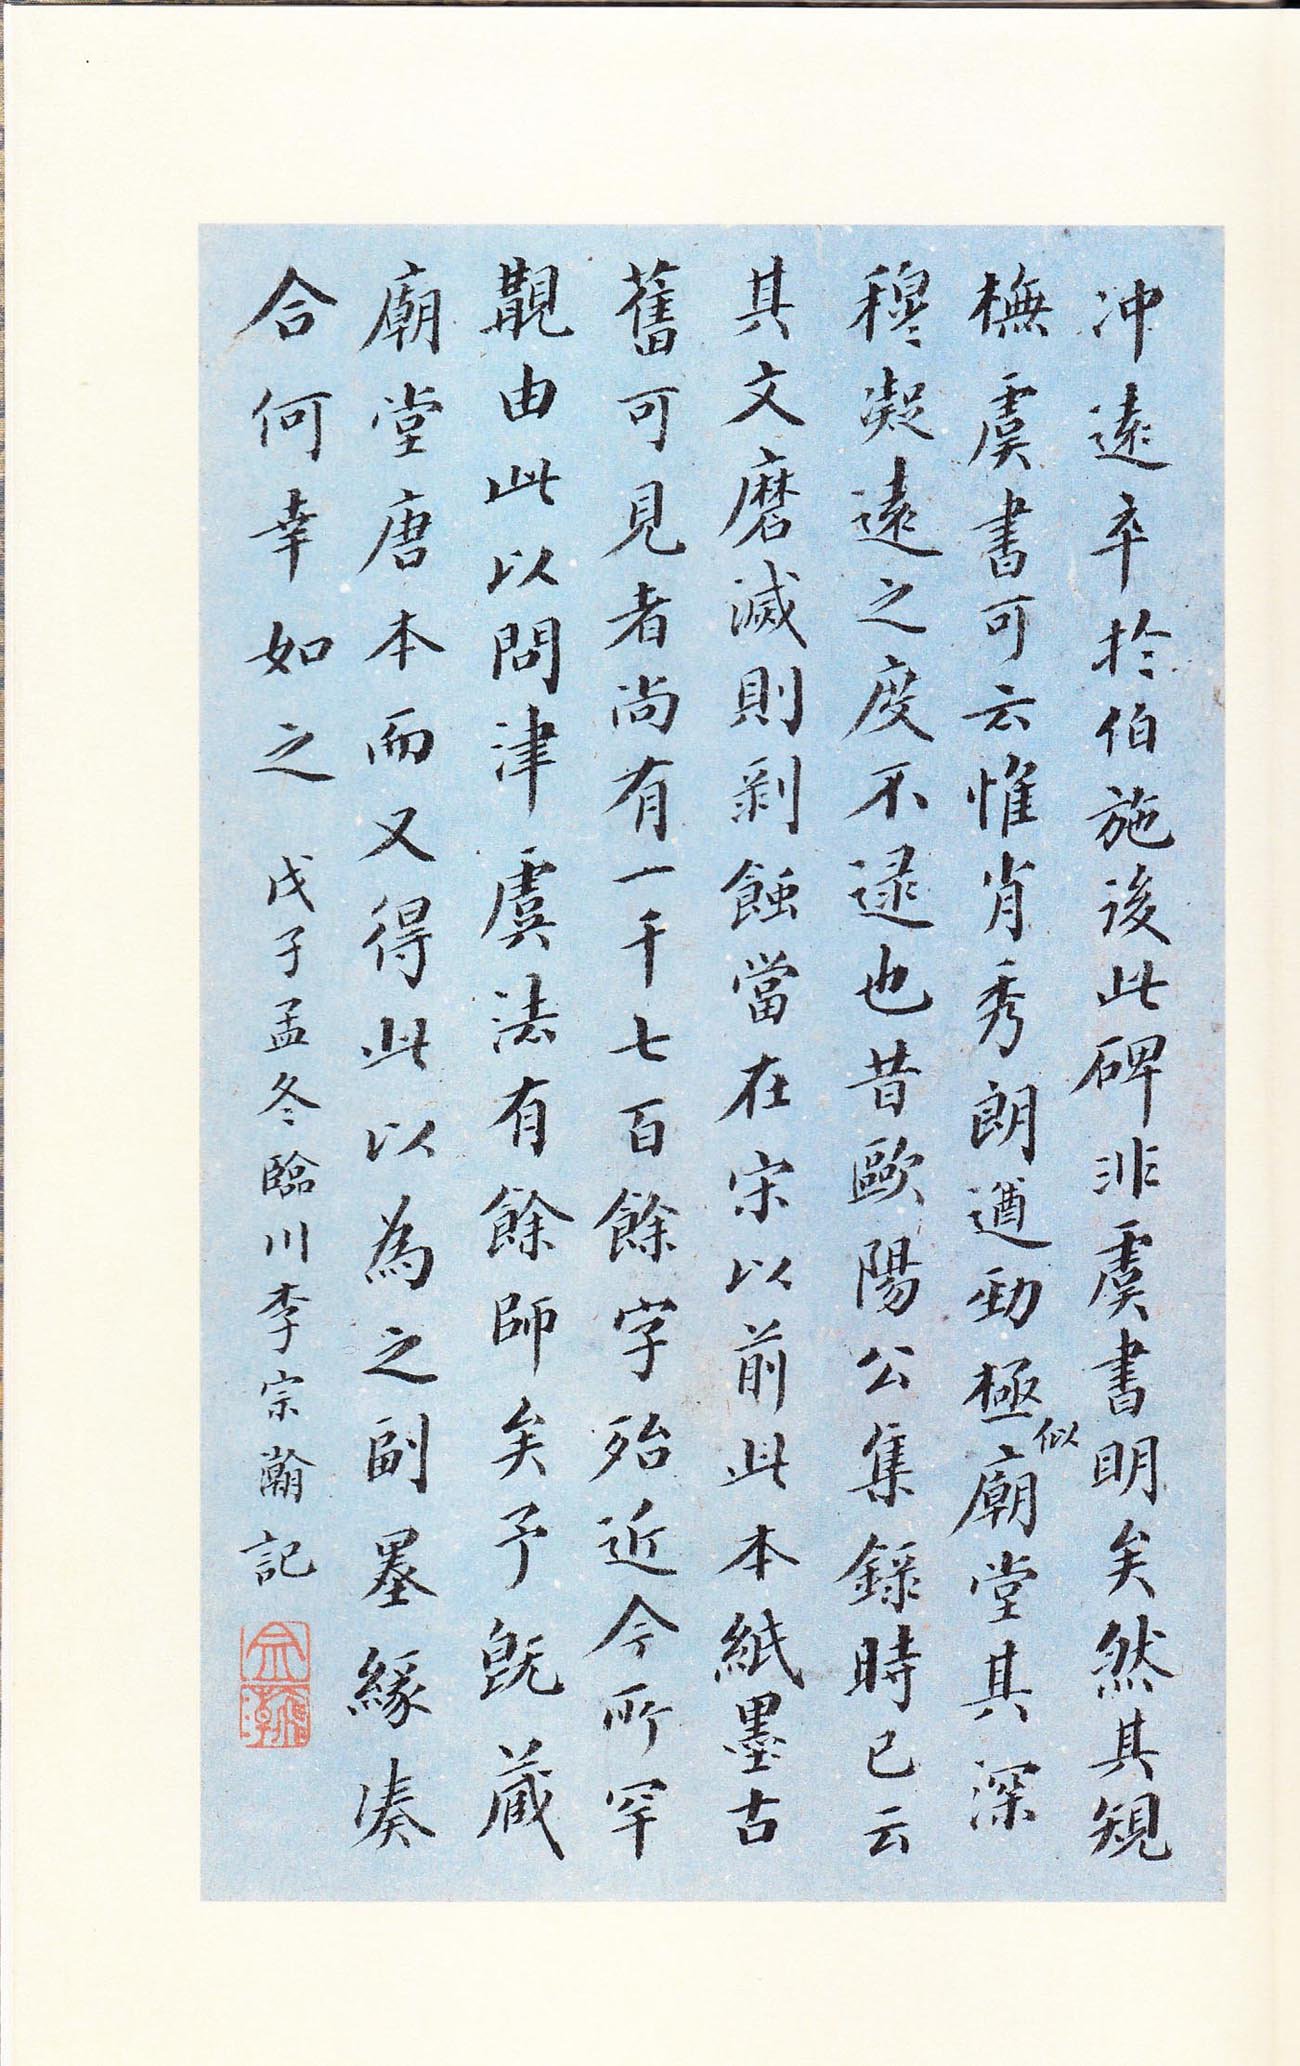 沖遠卒於伯施後此碑非虞書明矣然其規
橅虞書可云惟肖秀朗遒勁極似廟堂其深
穆凝遠之度不逮也昔歐陽公集錄時已云
其文磨滅則剝蝕當在宋以前此本紙墨古
舊可見者尚有一千七百餘字殆近今所罕
覯由此以問津虞法有餘師矣予既藏
廟堂唐本而又得此以為之副墨緣湊
合何幸如之 戊子孟冬臨川李宗瀚記